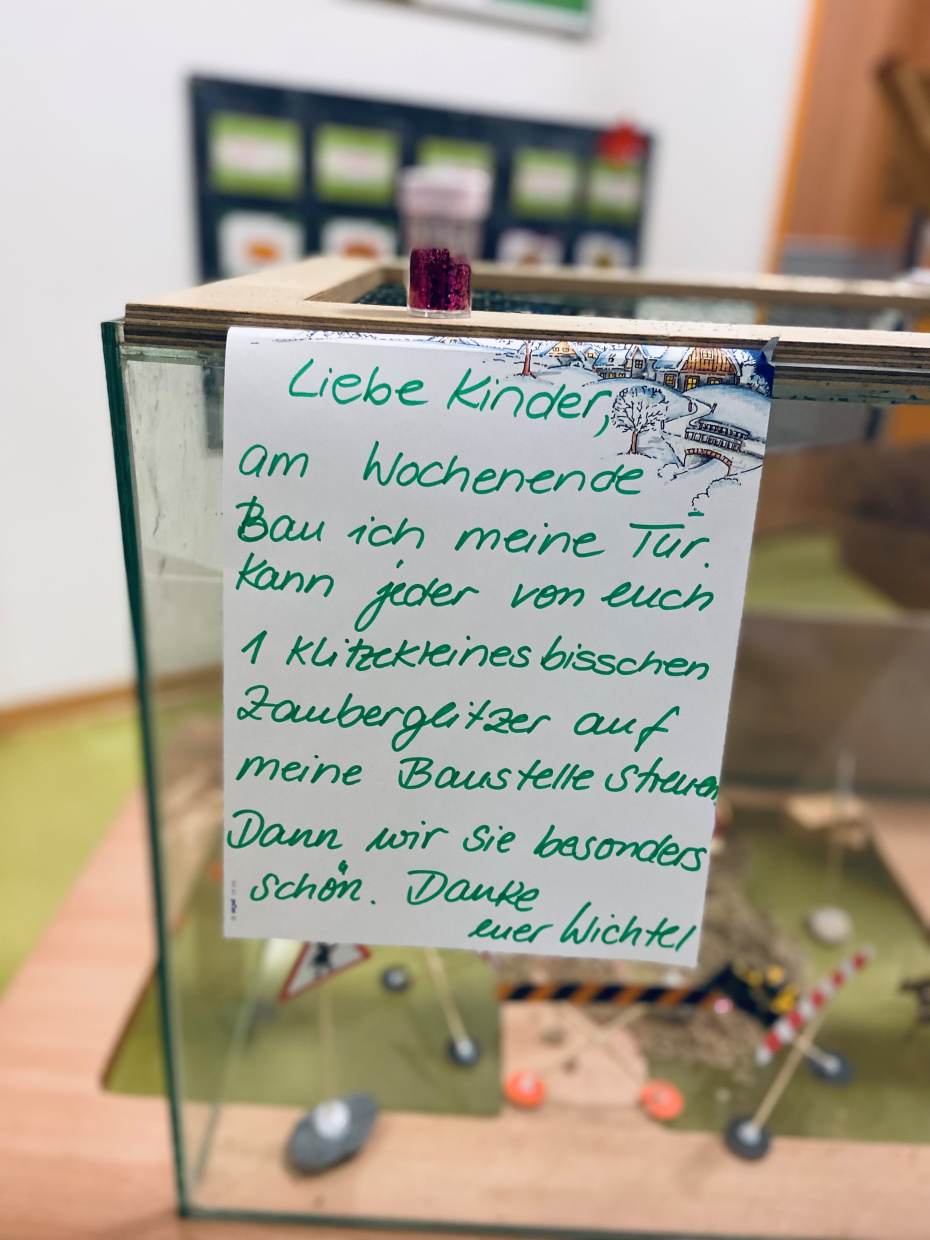 Liebe Kinder,
am Wochenende
Bau ich meine Tür.
Kann jeder von euch
1 klitzekleines bisschen
Zauberglitzer auf
meine Baustelle streuen
Dann wir sie besonders
schön. Danke
euer Wichtel